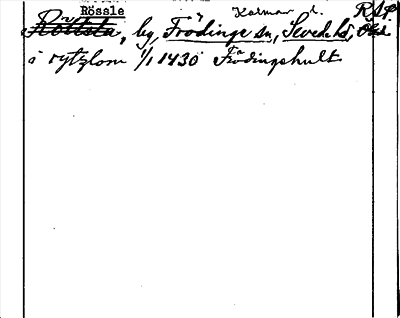 Rössle Kalmar l. RSP
Röttsta, by, Frödinge sn, Sevede hd,
i rytzlom 1/1 1430 Frödingshult